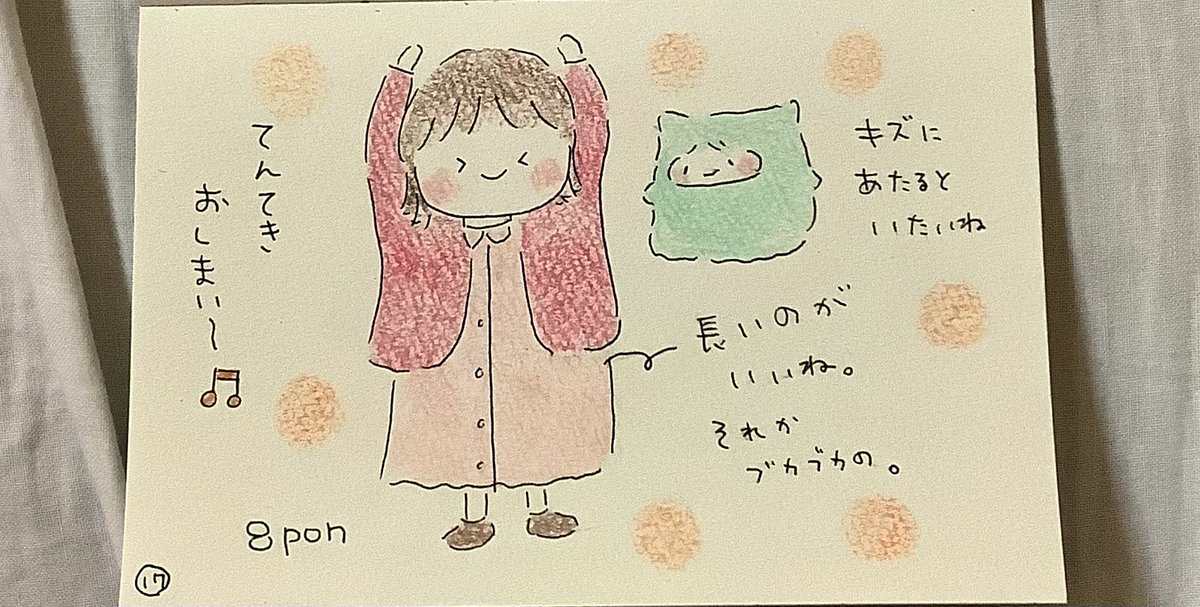 てんてき
おしまい〜♪
キズに
あたると
いたいね
長いのが
いいね。
それか
ブカブカの。
8pon
⑰